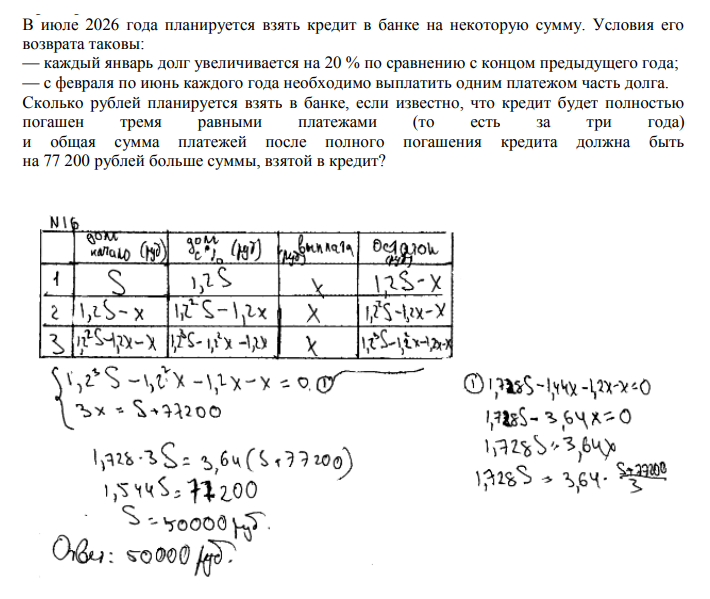 В июле 2026 года планируется взять кредит в банке на некоторую сумму. Условия его
возврата таковы:
— каждый январь долг увеличивается на 20 % по сравнению с концом предыдущего года;
— с февраля по июнь каждого года необходимо выплатить одним платежом часть долга.
Сколько рублей планируется взять в банке, если известно, что кредит будет полностью
погашен тремя равными платежами (то есть за три года)
и общая сумма платежей после полного погашения кредита должна быть
на 77 200 рублей больше суммы, взятой в кредит?
N16
долг начало (руб) долг с % (руб) выплата (руб) Остаток (руб)
1 S 1,2S x 1,2S-x
2 1,2S-x 1,2²S-1,2x x 1,2²S-1,2x-x
3 1,2²S-1,2x-x 1,2³S-1,2²x-1,2x x 1,2³S-1,2²x-1,2x-x
1,2³S-1,2²x-1,2x-x=0 ①
3x=S+77200
1,728·3S=3,64(S+77200)
1,544S=77200
S=50000 руб.
Ответ: 50000 руб.
① 1,728S-1,44x-1,2x-x=0
1,728S-3,64x=0
1,728S=3,64x
1,728S=3,64·(S+77200)/3